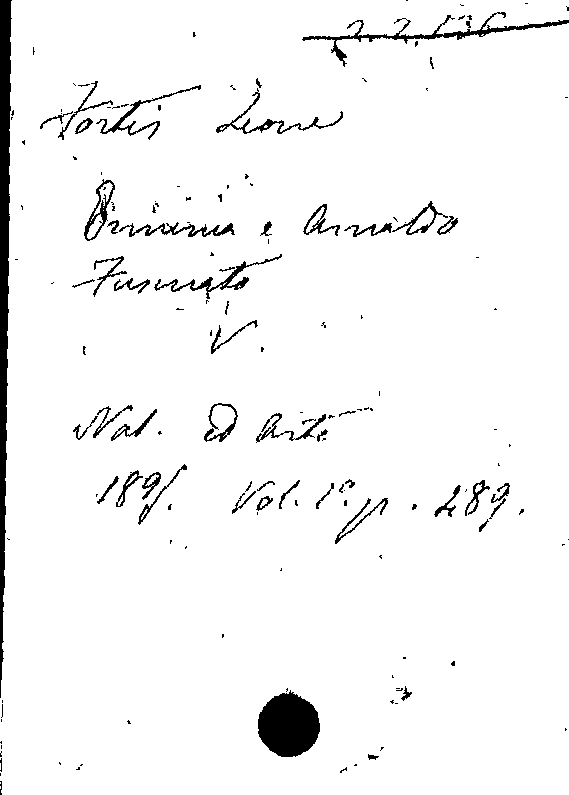 2. 2. 136
Fortis Leone
Erminia e Arnaldo
Fusinato
V.
Nat. ed Arte
1895. Vol. 1º. p. 289.